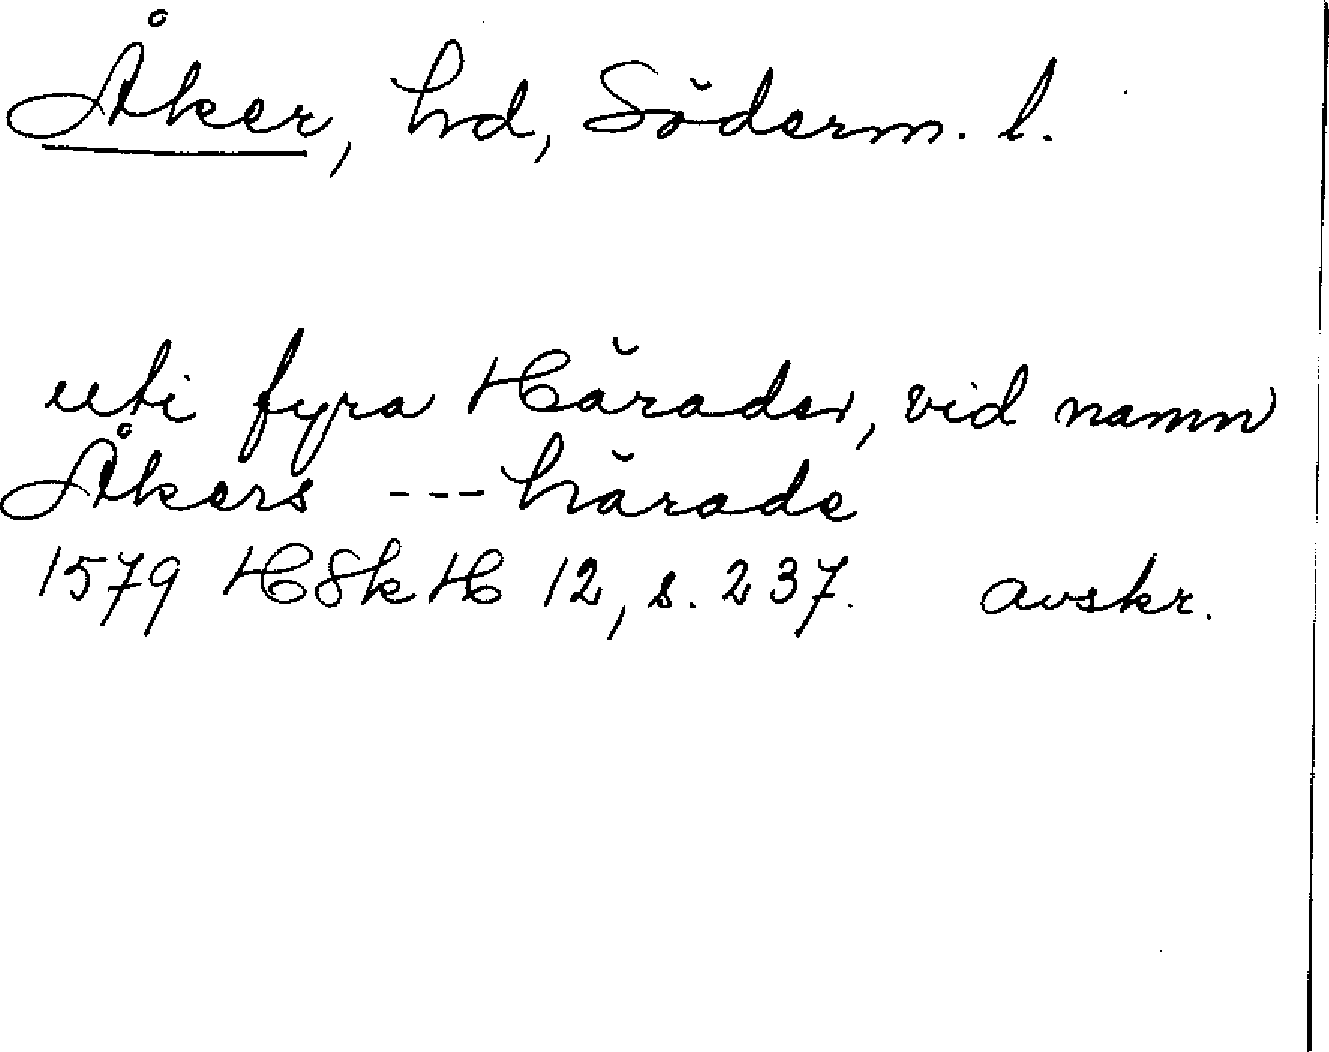 Åker, hd, Söderm. l.
uti fyra Härader, vid namn
Åkers --- härade
1579 HSkH 12, s. 237. avskr.